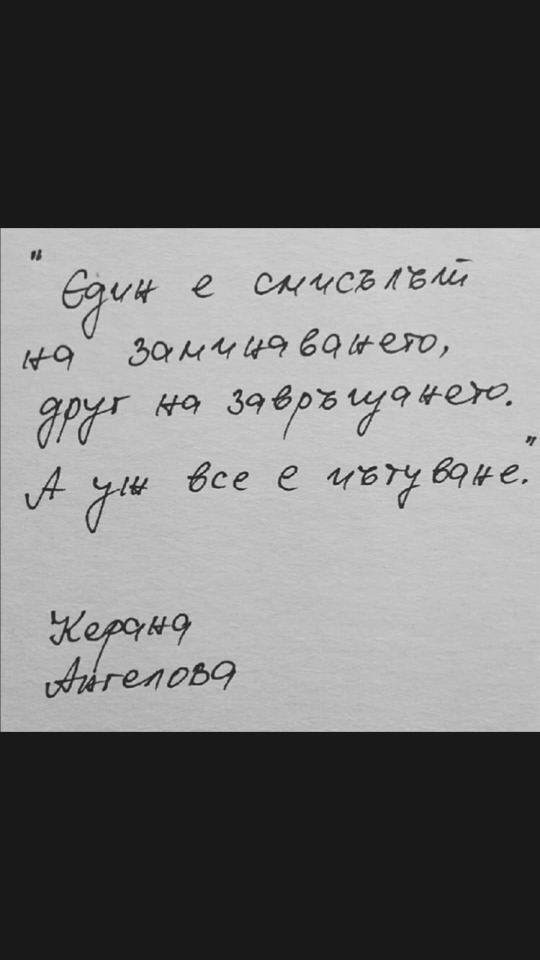 "Един е смисълът
на заминаването,
друг на завръщането.
А уж все е пътуване."
Керана
Ангелова